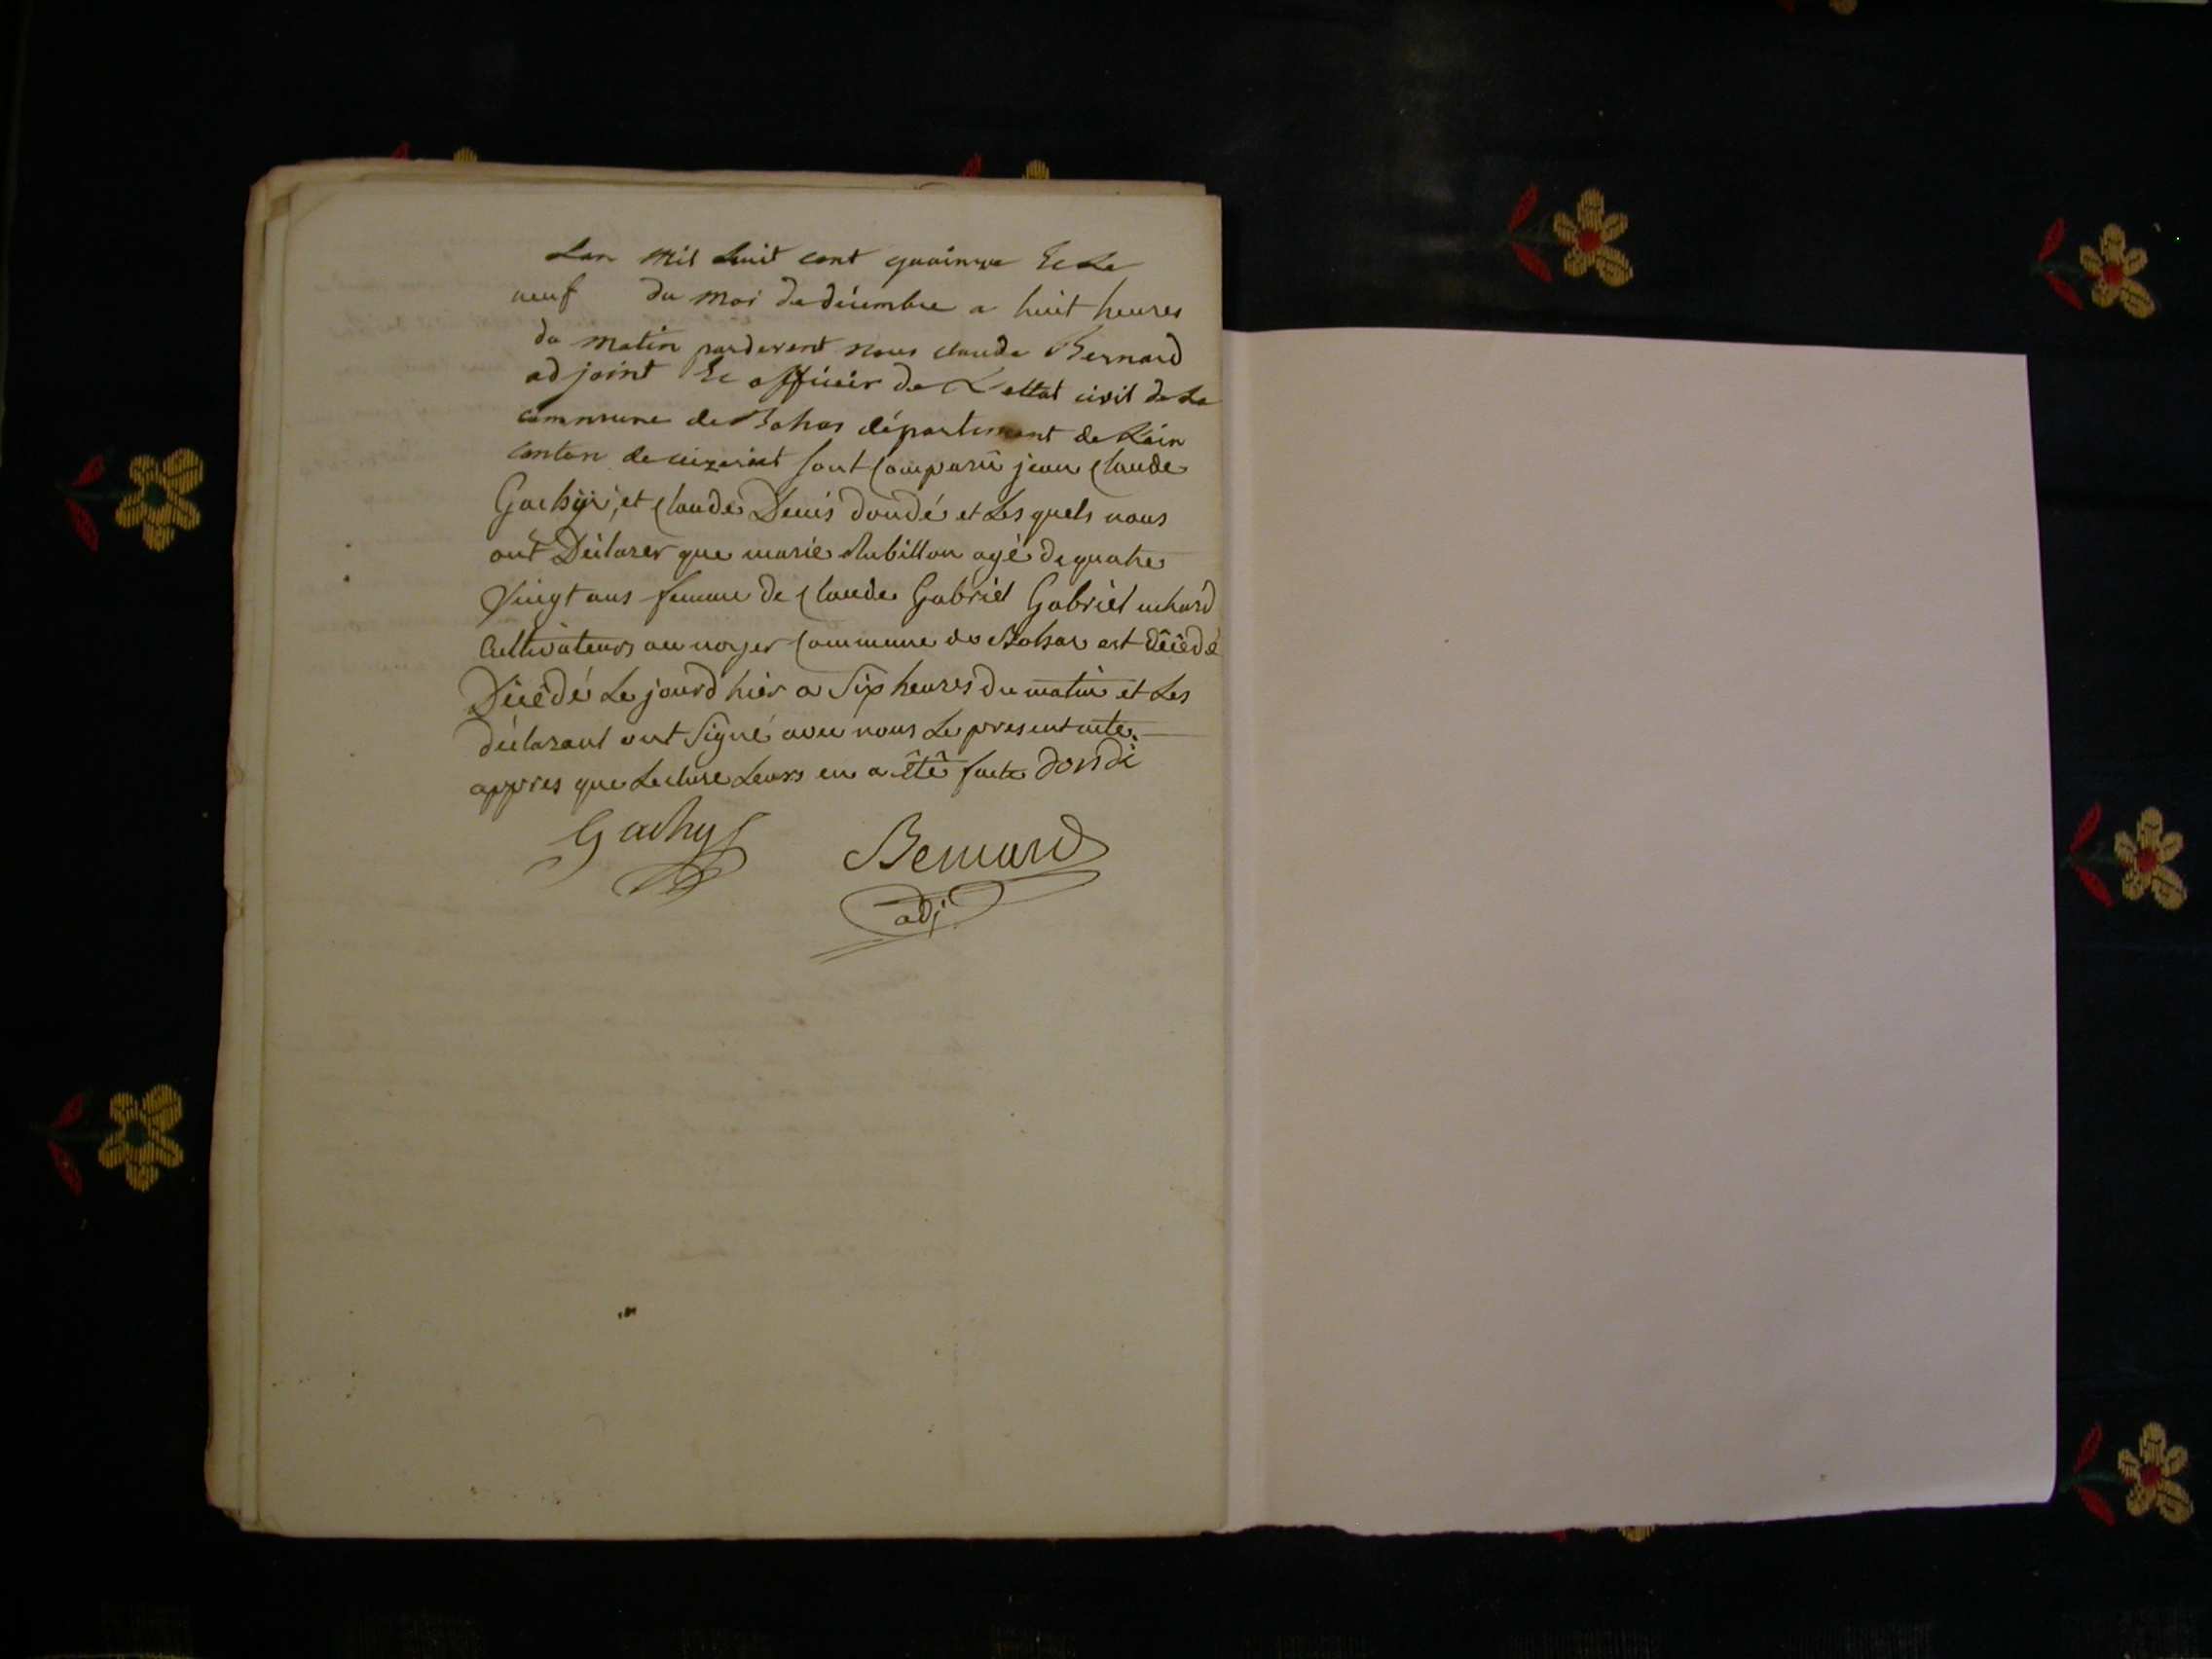 Lan mil huit cent quainze Et Le
neuf du moi de décembre a huit heures
du matin pardevent nous claude Bernard
adjoint Et officier de L'ettat civil de La
commune de Bohas département de Lain
canton de ceizeriat sont Comparu jean Claude
Gachÿ, et Claude Denis dondé et Les quels nous
ont Déclarer que marie Rubillon agé de quatre
Vingt ans femme de Claude Gabriel Gabriel
Cultivateurs au noyer Commune de Bohas est décédé
Décédé Le jourd hier a Six heures du matin et Les
déclarant ont Signé avec nous Le present acte.
appres que Lecture Leurs en a été faite dondé
Gachy Bernard
adj